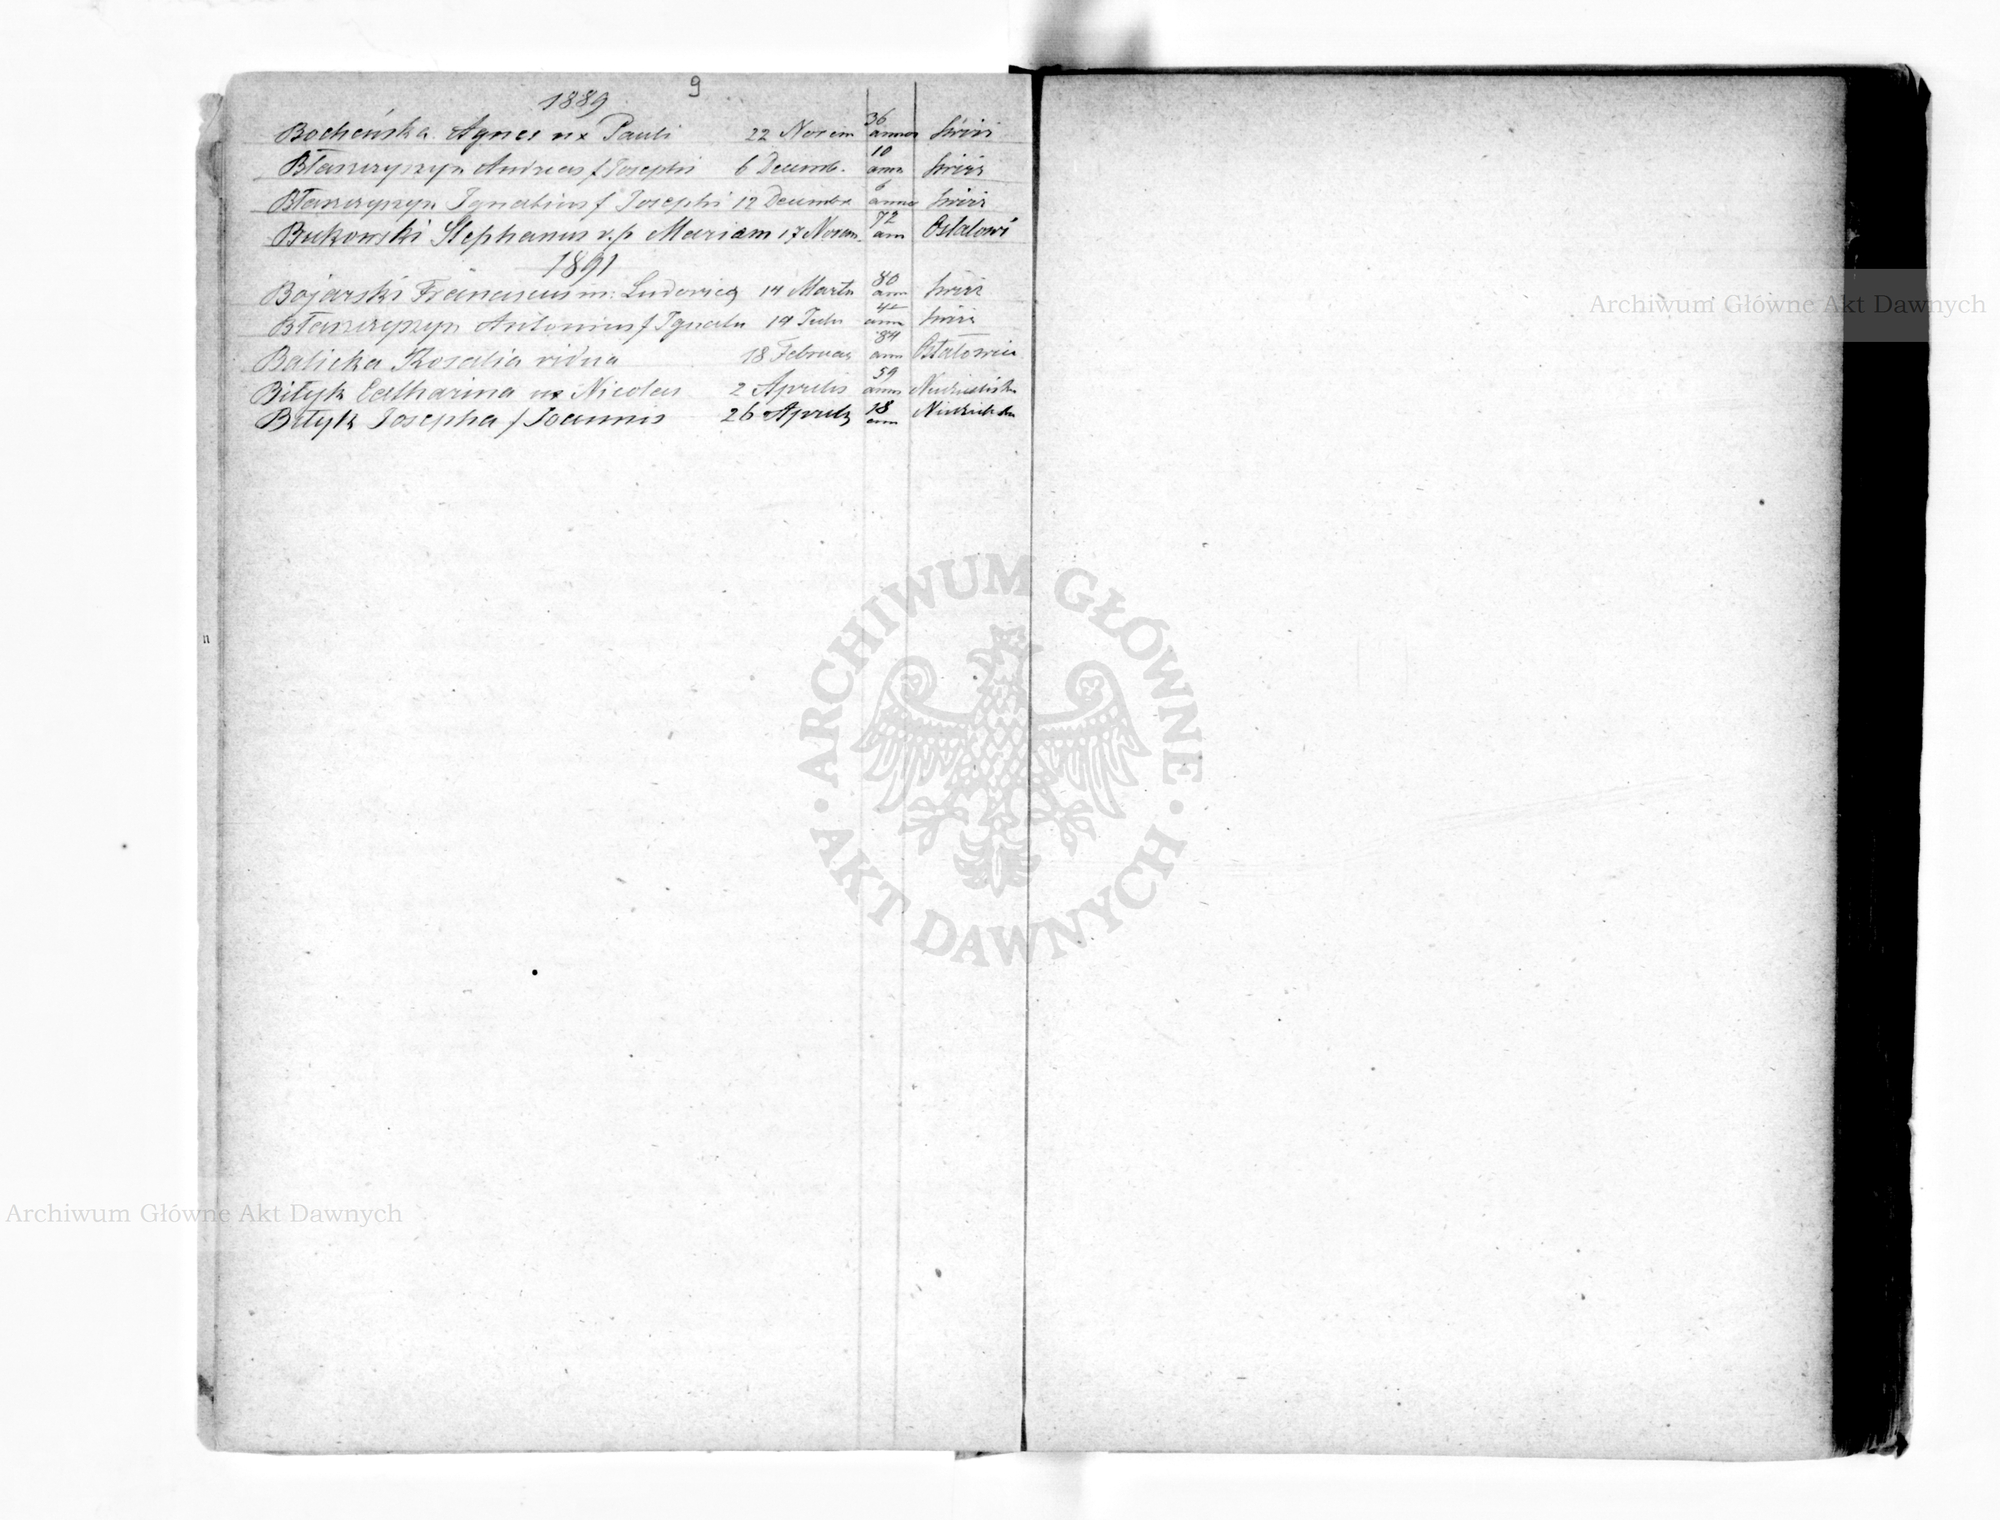 9
1889
Bocheńska Agnes ux Pauli 22 Novem 36 annor Świrż
Błaszczyszyn Andreas f Josephi 6 Decemb. 10 ann Świrż
Błaszczyszyn Ignatius f Josephi 12 Decembr 6 annor Świrż
Bukowski Stephanus v. p Mariam 17 Novem. 72 ann Ostalowi
1891
Bojarski Franciscus m: Ludovica 14 Martii 80 ann Świrż
Błaszczyszyn Antonius f Ignatii 19 ann Świrż
Balicka Rosalia vidua 18 Februar 84 ann Ostalowice
Bityk Catharina ux Nicolai 2 Aprilis 59 ann
Bityk Josepha f Joannis 26 Aprilis 18 ann
Archiwum Główne Akt Dawnych
ARCHIWUM GŁÓWNE AKT DAWNYCH
Archiwum Główne Akt Dawnych